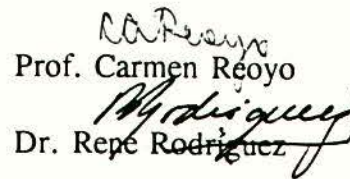 CAReoyo
Prof. Carmen Reoyo
Rodriguez
Dr. Rene Rodriguez